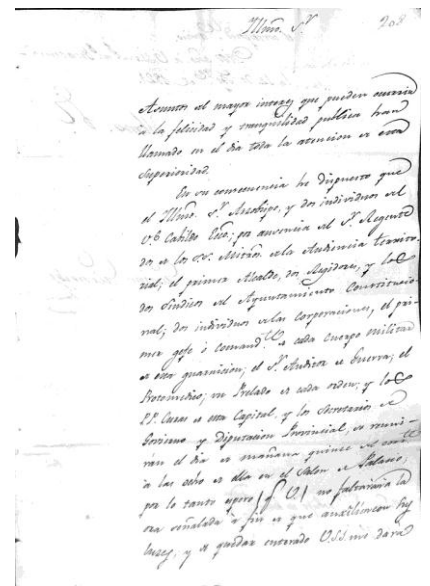 Illmo. Sr.
208
Asuntos del mayor interes que pueden ocurrir
a la felicidad y tranquilidad publica han
llamado en el dia toda la atencion de esta
Superioridad.
En su consecuencia he dispuesto que
el Illmo. Sr. Arzobispo, y dos individuos del
V. Cabildo Ecco; por ausencia del Sr. Regente
dos de los S.S. Mitros. de la Audiencia territo-
rial; el primer Alcalde, dos Regidores, y los
dos Sindicos del Ayuntamiento Constitucio-
nal; dos individuos de las Corporaciones, el pri-
mer gefe ó comandte. de cada cuerpo militar
de esta guarnicion; el Sr. Auditor de Guerra; el
Protomedico; un Prelado de cada orden; y los
P.P. Curas de esta Capital, y los Secretarios de
Govierno y Diputacion Provincial, se reuni-
rán el dia de mañana quince del
a las ocho de ella en el Salon de Palacio;
por lo tanto espero q. no faltará á la
ora señalada a fin de que auxilien con sus
luces; y de quedar enterado U.S.S. me dará